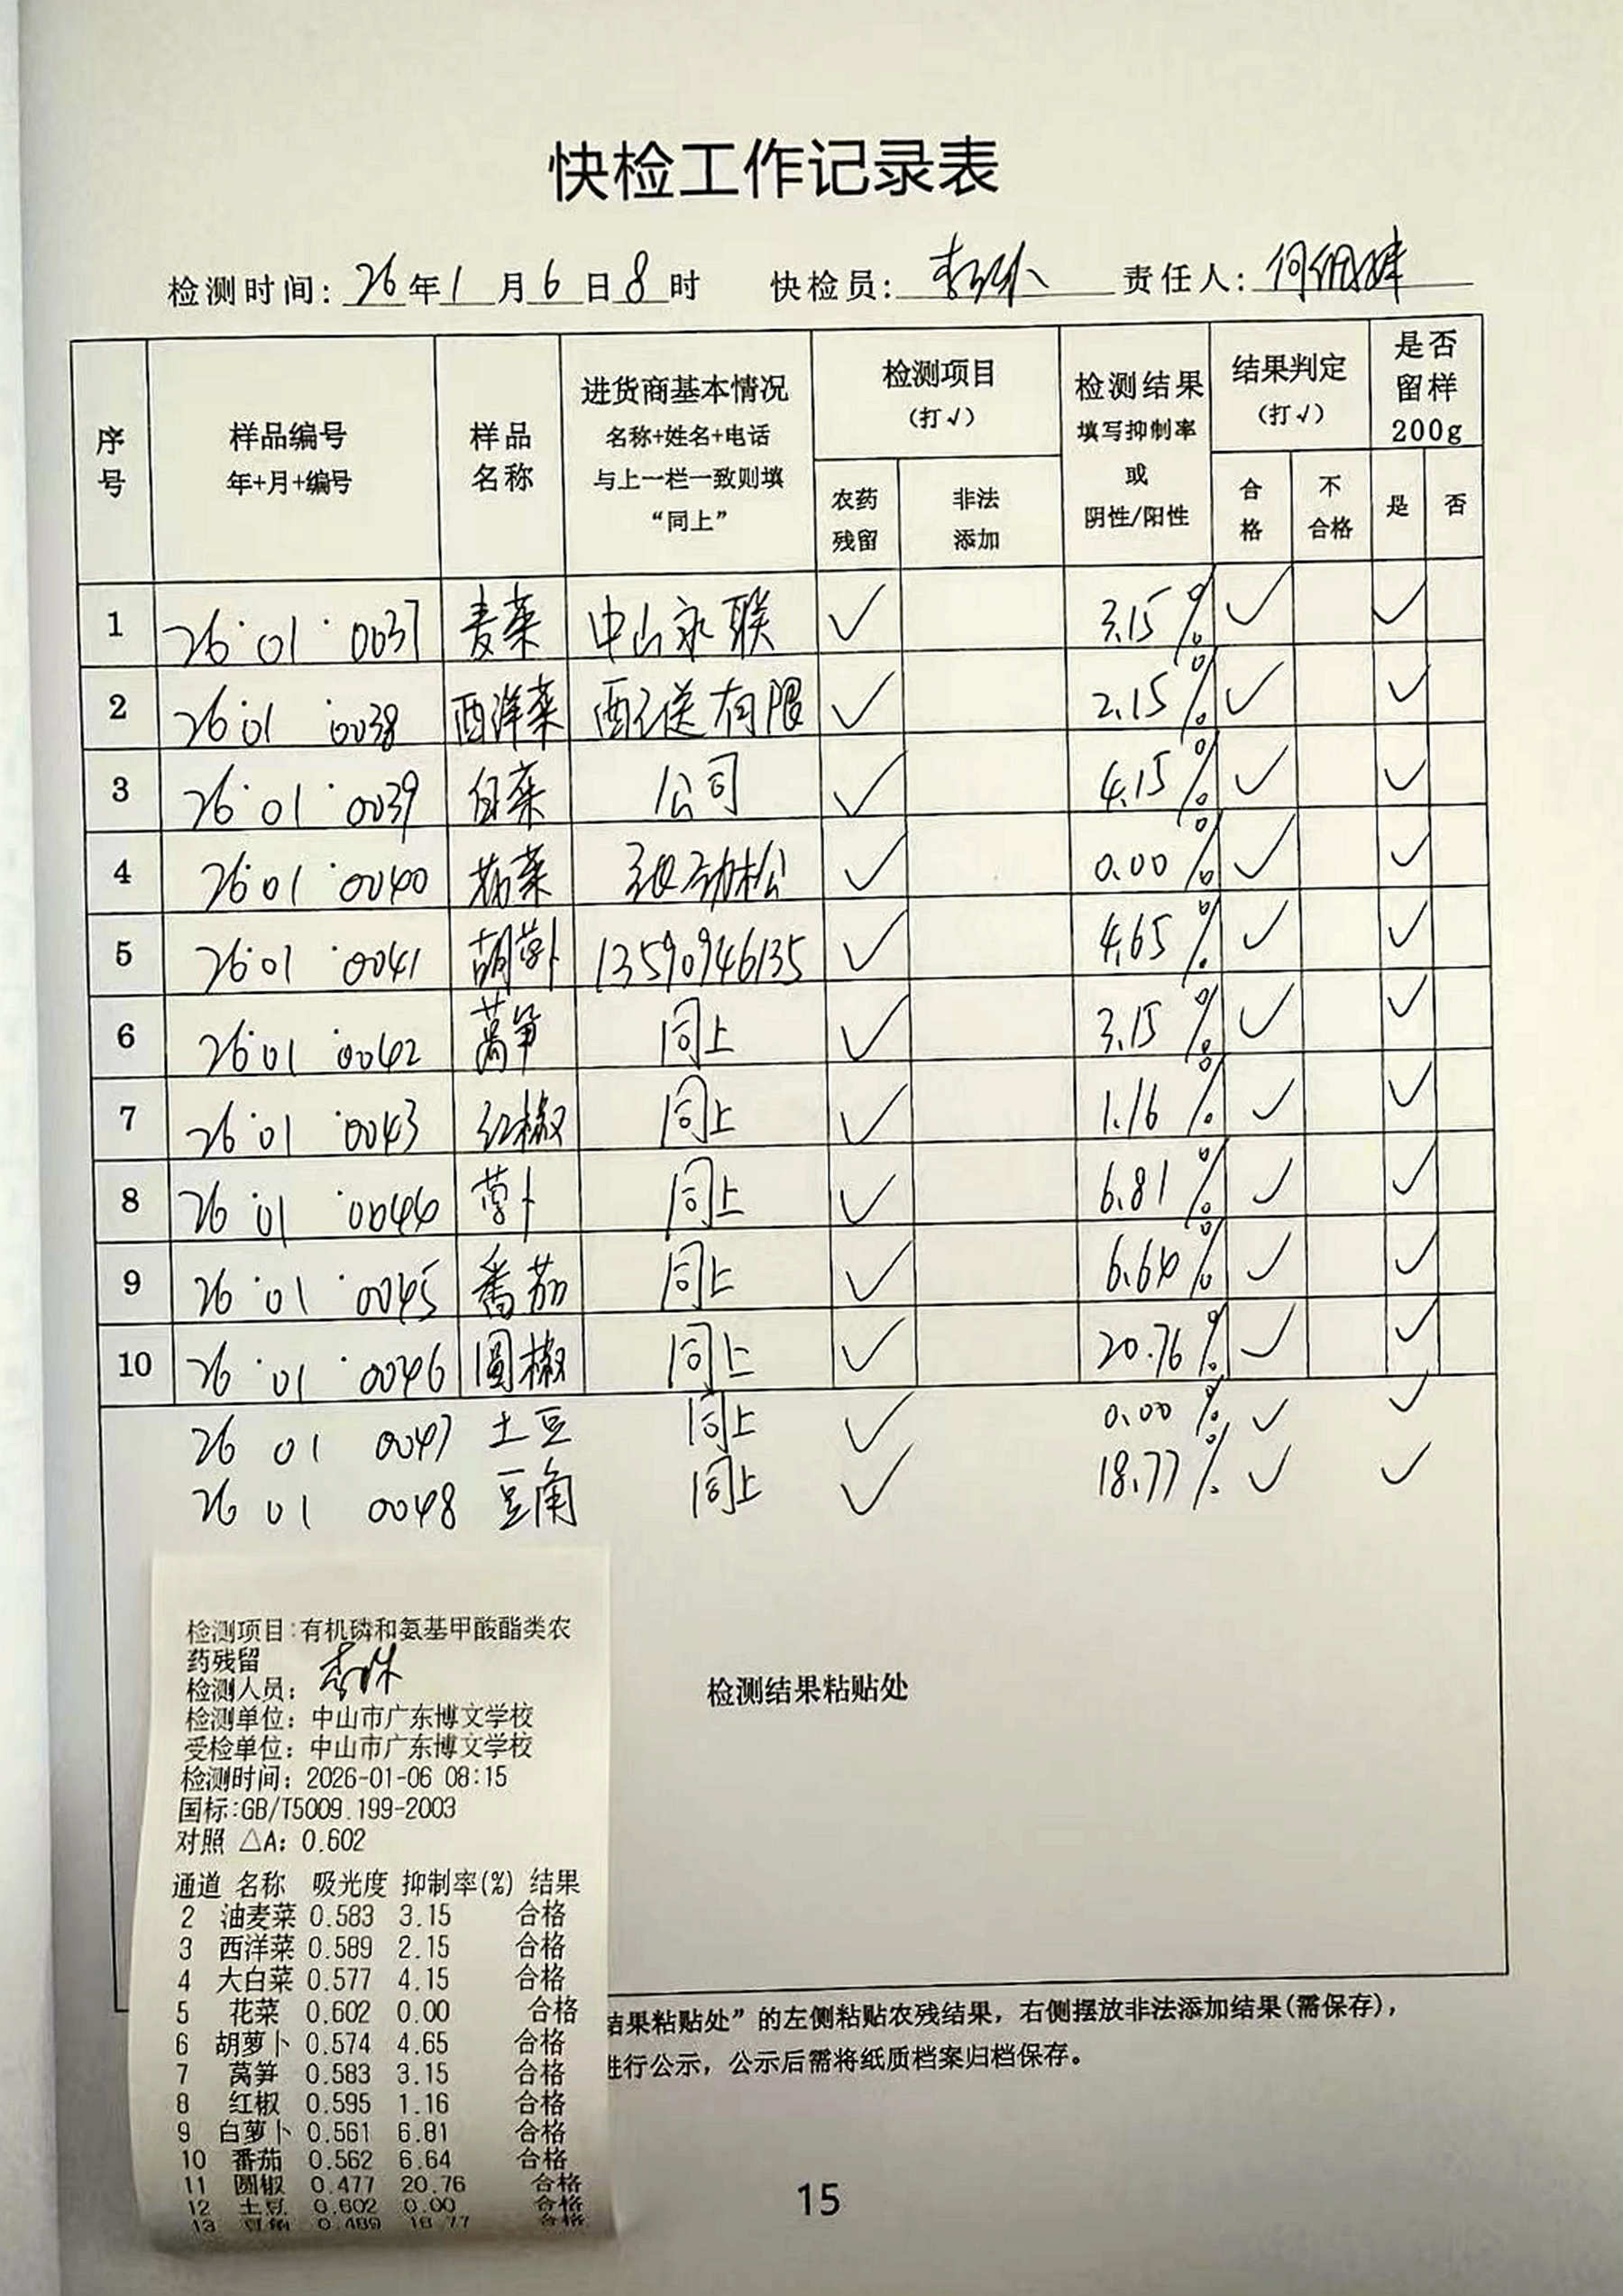 快检工作记录表
检测时间: 26 年 1 月 6 日 8 时 快检员: 责任人: 何
序号 样品编号 年+月+编号 样品名称 进货商基本情况 名称+姓名+电话 与上一栏一致则填 “同上” 检测项目 (打√) 农药残留 非法添加 检测结果 填写抑制率 或 阴性/阳性 结果判定 (打√) 合格 不合格 是否留样 200g 是 否
1 26·01·0037 麦菜 中山永联 ✓ 3.15% ✓ ✓
2 26·01·0038 西洋菜 配送有限 ✓ 2.15% ✓ ✓
3 26·01·0039 白菜 公司 ✓ 4.15% ✓ ✓
4 26·01·0040 花菜 劲松 ✓ 0.00% ✓ ✓
5 26·01·0041 胡萝卜 13590946135 ✓ 4.65% ✓ ✓
6 26·01·0042 莴笋 同上 ✓ 3.15% ✓ ✓
7 26·01·0043 红椒 同上 ✓ 1.16% ✓ ✓
8 26·01·0044 萝卜 同上 ✓ 6.81% ✓ ✓
9 26·01·0045 番茄 同上 ✓ 6.64% ✓ ✓
10 26·01·0046 圆椒 同上 ✓ 20.76% ✓ ✓
26 01 0047 土豆 同上 ✓ 0.00% ✓ ✓
26 01 0048 豆角 同上 ✓ 18.77% ✓ ✓
检测结果粘贴处
检测项目:有机磷和氨基甲酸酯类农
药残留
检测人员:
检测单位: 中山市广东博文学校
受检单位: 中山市广东博文学校
检测时间: 2026-01-06 08:15
国标:GB/T5009.199-2003
对照 △A: 0.602
通道 名称 吸光度 抑制率(%) 结果
2 油麦菜 0.583 3.15 合格
3 西洋菜 0.589 2.15 合格
4 大白菜 0.577 4.15 合格
5 花菜 0.602 0.00 合格
6 胡萝卜 0.574 4.65 合格
7 莴笋 0.583 3.15 合格
8 红椒 0.595 1.16 合格
9 白萝卜 0.561 6.81 合格
10 番茄 0.562 6.64 合格
11 圆椒 0.477 20.76 合格
12 土豆 0.602 0.00 合格
13 豆角 0.489 18.77 合格
结果粘贴处”的左侧粘贴农残结果，右侧摆放非法添加结果(需保存)，
进行公示，公示后需将纸质档案归档保存。
15